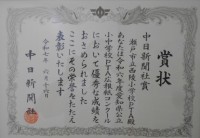 賞状
中日新聞社賞
瀬戸市立西陵小学校PTA殿
あなたは令和六年度愛知県公立
小中学校PTA広報紙コンクール
において優秀な成績を
おさめられました
ここにその栄誉をたたえ
表彰いたします
令和七年 六月十四日
中日新聞社